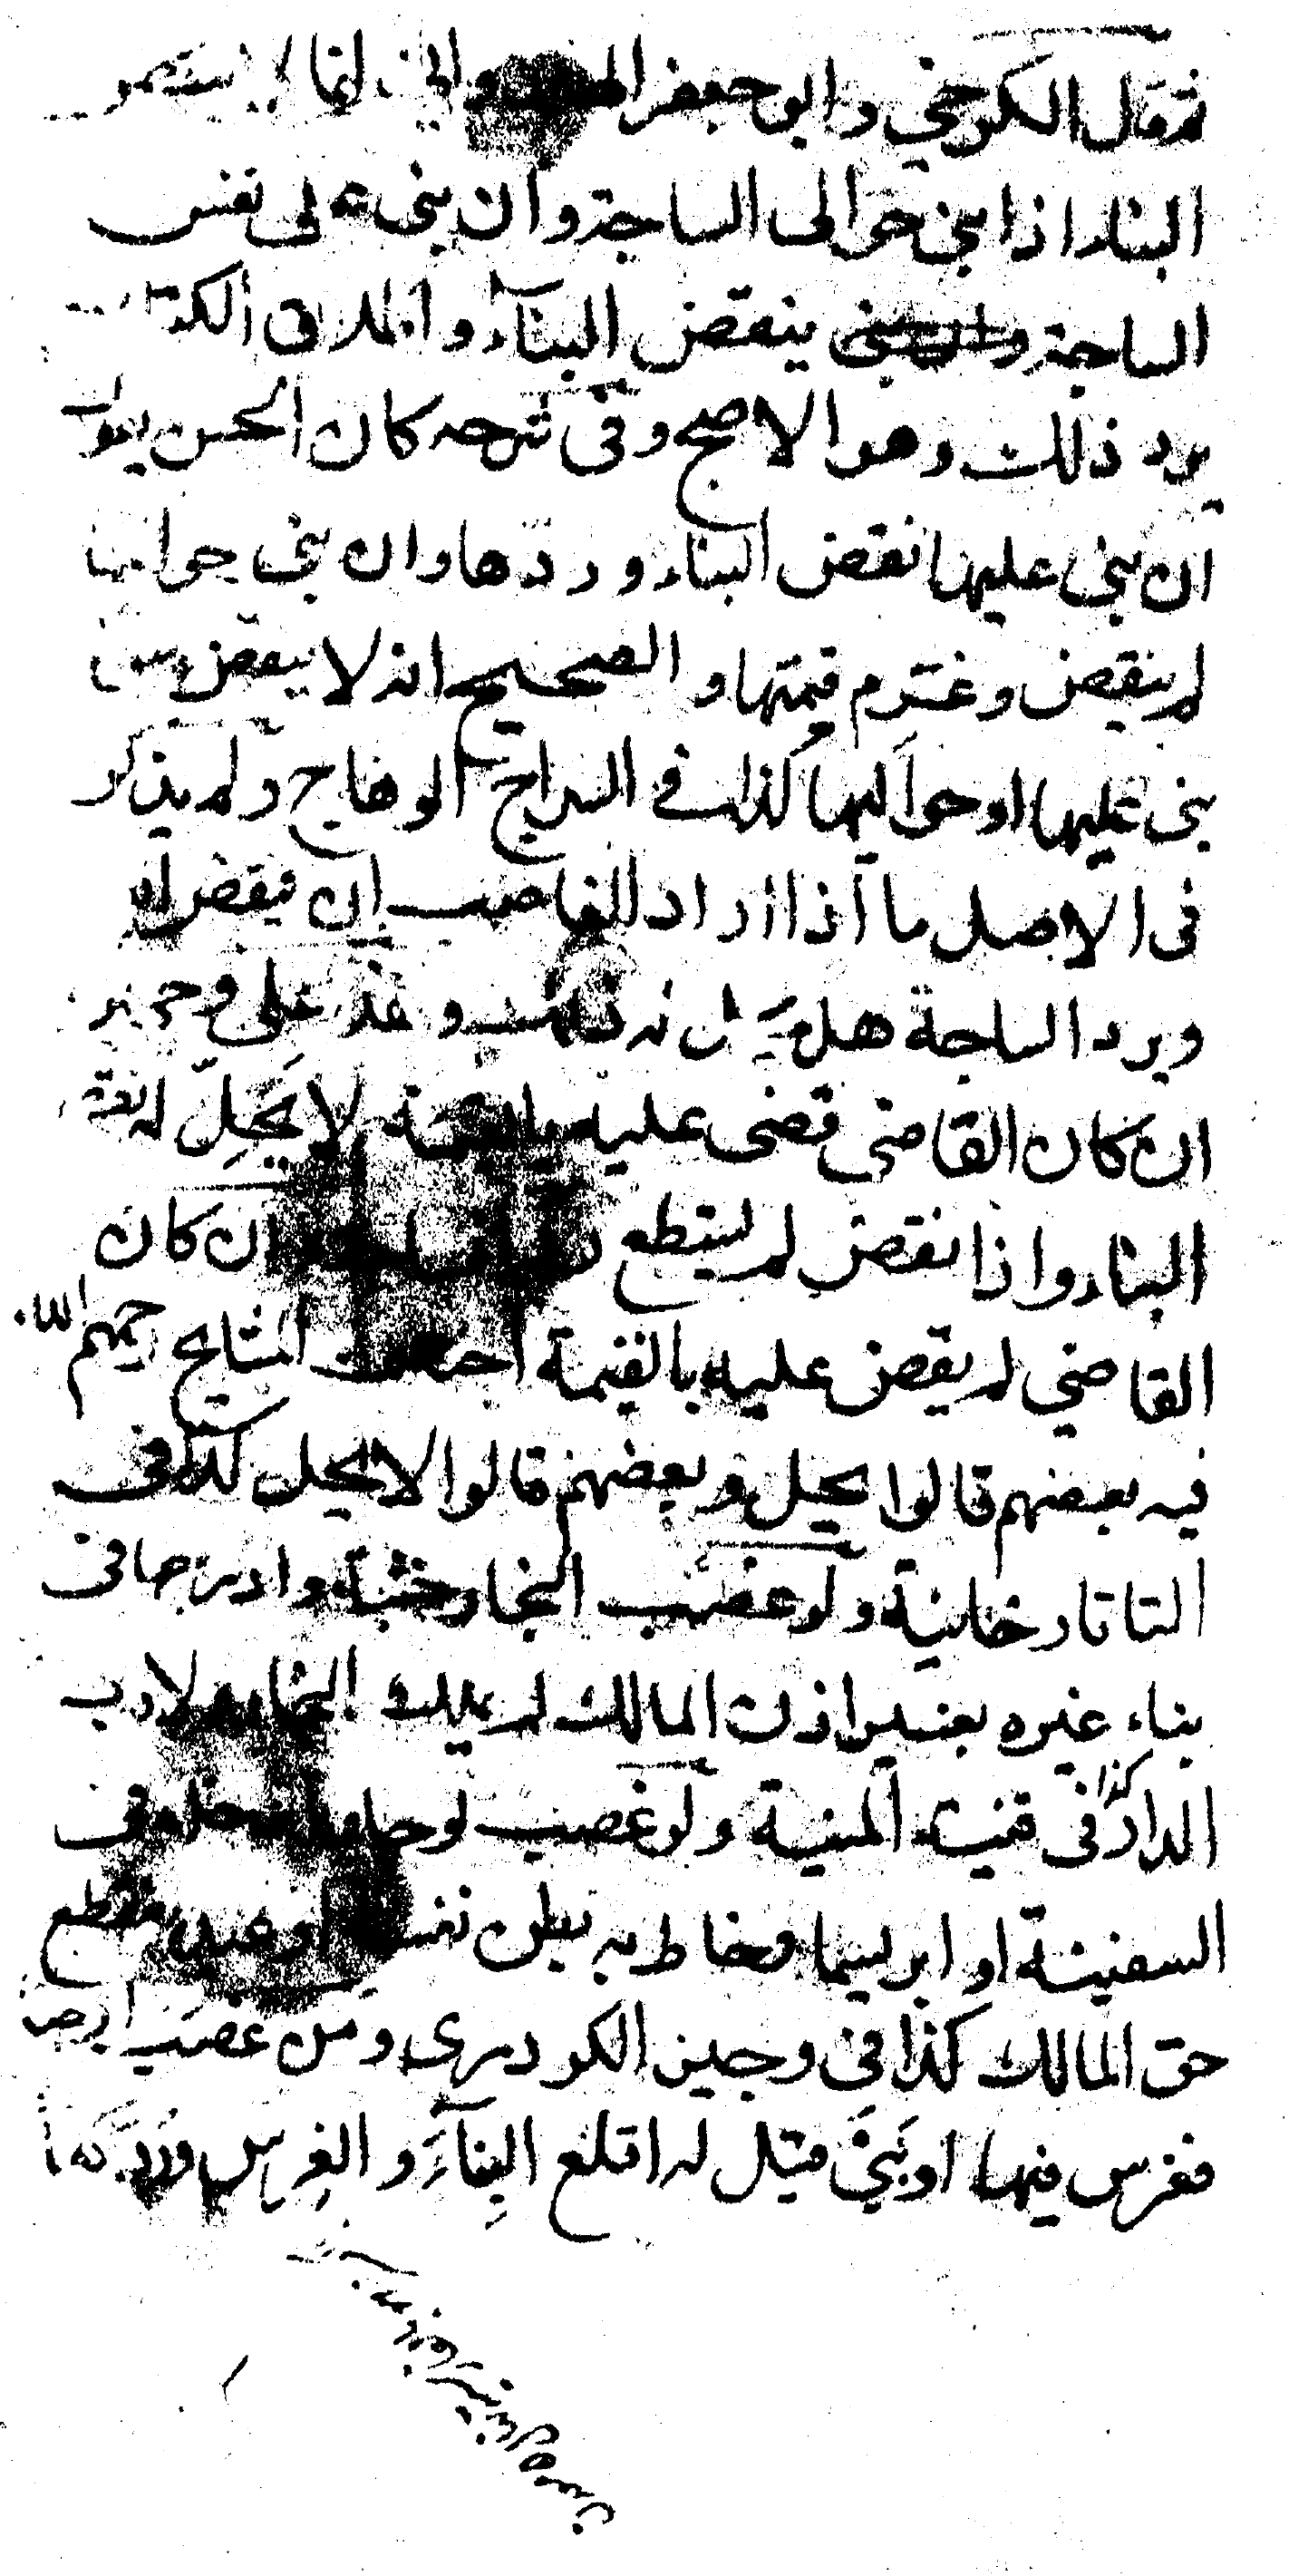 ثم قال الكرخي وابو جعفر انما لا ينقض
البناء اذا بنى حوالى الساجة وان بنى على نفس
الساجة ينقض البناء واطلاق الكتاب
يرد ذلك وهو الاصح وفى شرحه كان الحسن يقول
ان بنى عليها نقض البناء وردها وان بنى حواليها
لم ينقض وغرم قيمتها والصحيح انه لا ينقض سواء
بنى عليها او حواليها كذا فى السراج الوهاج ولم يذكر
فى الاصل ما اذا اراد الغاصب ان ينقض
ويرد الساجة هل له ذلك وهذا على وجهين
ان كان القاضى قضى عليه بالقيمة لا يحل له نقض
البناء واذا نقض لم يستطع وان كان
القاضي لم يقض عليه بالقيمة اختلف المشايخ رحمهم الله
فيه بعضهم قالوا يحل وبعضهم قالوا لا يحل كذا فى
التاتارخانية ولو غصب النجار خشبة وادرجها فى
بناء غيره بغير اذن المالك لم يملك النجار ولا رب
الدار كذا فى قنية المنية ولو غصب لوحا فى
السفينة او ابريسما وخاط به بطن نفسه او عبده ينقطع
حق المالك كذا فى وجيز الكردرى ومن غصب ارضا
فغرس فيها او بنى قيل له اقلع البناء والغرس وردها